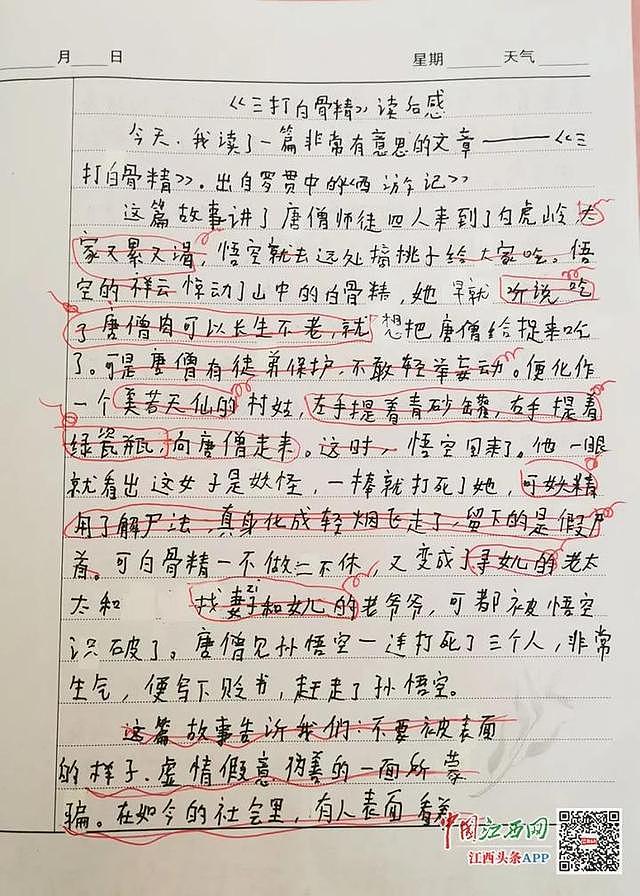 月 日 星期 天气
《三打白骨精》读后感
今天,我读了一篇非常有意思的文章——《三
打白骨精》。出自罗贯中的《西游记》
这篇故事讲了唐僧师徒四人来到了白虎岭,大
家又累又渴,悟空就去远处摘桃子给大家吃。悟
空的祥云惊动了山中的白骨精,她早就听说吃
了唐僧肉可以长生不老,就想把唐僧给捉来吃
了。可是唐僧有徒弟保护,不敢轻举妄动。便化作
一个美若天仙的村姑,左手提着青砂罐,右手提着
绿瓷瓶,向唐僧走来。这时,悟空回来了。他一眼
就看出这女子是妖怪,一棒就打死了她,可妖精
用了解尸法,真身化成轻烟飞走了,留下的是假尸
首。可白骨精一不做二不休,又变成了寻女儿的老太
太和 找妻子和女儿的老爷爷,可都被悟空
识破了。唐僧见孙悟空一连打死了三个人,非常
生气,便写下贬书,赶走了孙悟空。
这篇故事告诉我们:不要被表面
的样子,虚情假意伪善的一面所蒙
骗。在如今的社会里,有人表面看着
中国江西网
江西头条APP